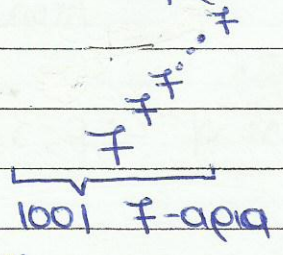 7 7 7 ... 7
1001 7-αρια